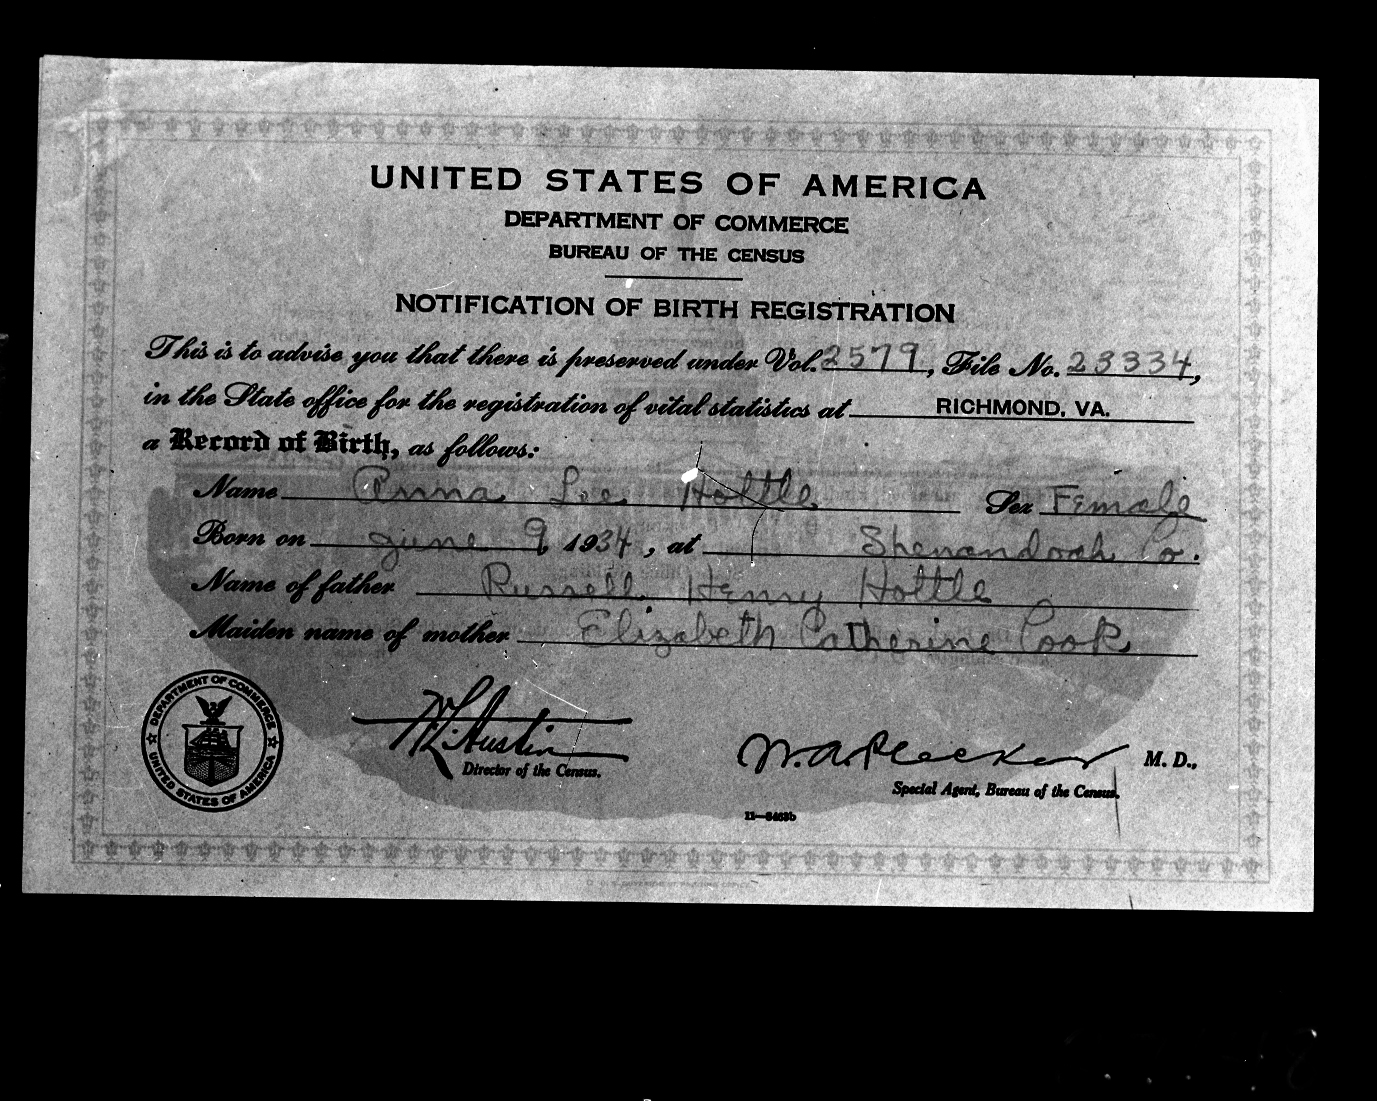 UNITED STATES OF AMERICA
DEPARTMENT OF COMMERCE
BUREAU OF THE CENSUS
NOTIFICATION OF BIRTH REGISTRATION
This is to advise you that there is preserved under Vol. 2579, File No. 23334,
in the State office for the registration of vital statistics at RICHMOND, VA.
a Record of Birth, as follows:
Name Anna Lee Hottle Sex Female
Born on June 9, 1934, at Shenandoah Co.
Name of father Russell Henry Hottle
Maiden name of mother Elizabeth Catherine Cook
DEPARTMENT OF COMMERCE
UNITED STATES OF AMERICA
W. L. Austin
Director of the Census.
W. A. Plecker M. D.,
Special Agent, Bureau of the Census.